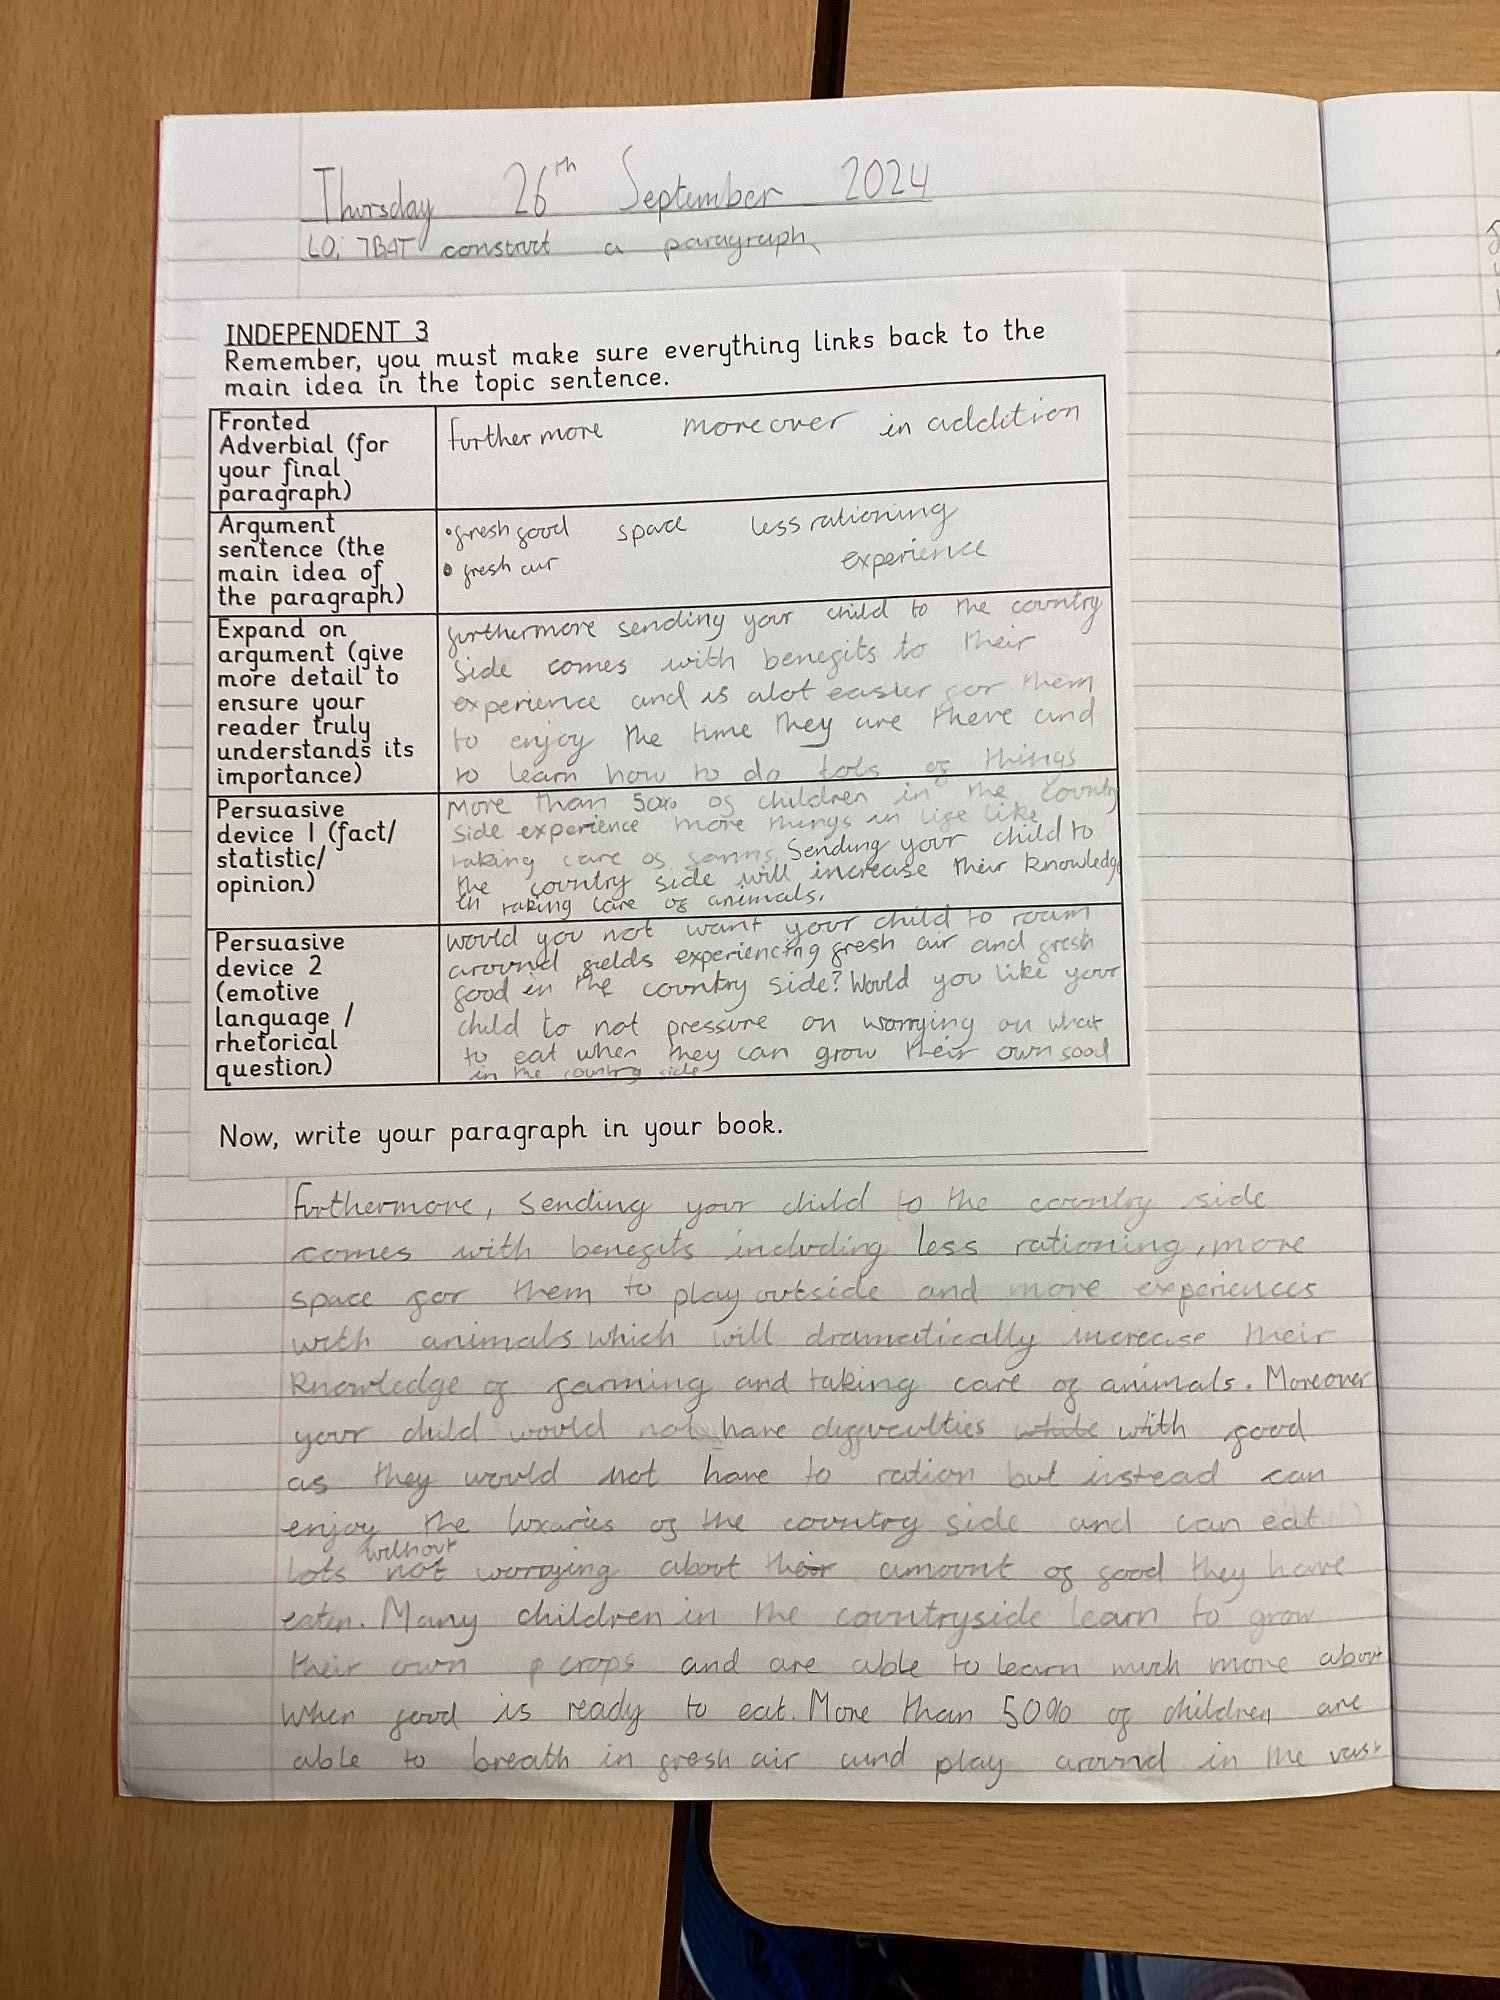 Thursday 26th September 2024
LO: TBAT construct a paragraph
INDEPENDENT 3
Remember, you must make sure everything links back to the
main idea in the topic sentence.
Fronted
Adverbial (for
your final
paragraph)
furthermore moreover in addition
Argument
sentence (the
main idea of
the paragraph)
• fresh food space less rationing
• fresh air experience
Expand on
argument (give
more detail to
ensure your
reader truly
understands its
importance)
furthermore sending your child to the country
side comes with benefits to their
experience and is alot easier for them
to enjoy the time they are there and
to learn how to do lots of things
Persuasive
device 1 (fact/
statistic/
opinion)
More than 50% of children in the country
side experience more things in life like
taking care of farms. Sending your child to
the country side will increase their knowledge
in taking care of animals.
Persuasive
device 2
(emotive
language /
rhetorical
question)
would you not want your child to roam
around fields experiencing fresh air and fresh
food in the country side? Would you like your
child to not pressure on worrying on what
to eat when they can grow their own food
in the country side
Now, write your paragraph in your book.
furthermore, sending your child to the country side
comes with benefits including less rationing, more
space for them to play outside and more experiences
with animals which will dramatically increase their
knowledge of farming and taking care of animals. Moreover
your child would not have difficulties while with food
as they would not have to ration but instead can
enjoy the luxaries of the country side and can eat
without
lots not worrying about their amount of food they have
eaten. Many children in the countryside learn to grow
their own p crops and are able to learn much more about
when food is ready to eat. More than 50% of children are
able to breath in fresh air and play around in the vast